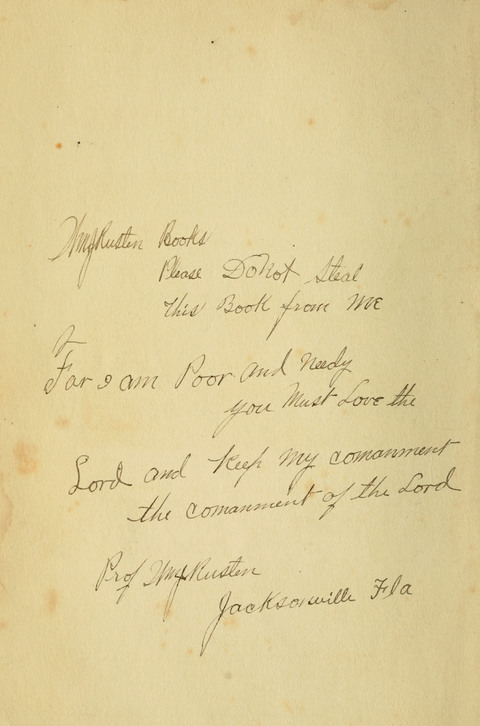 WmJRusten Books
Please Do Not Steal
this Book from ME
For I am Poor and Needy
you Must Love the
Lord and Keep My comanment
the comanment of the Lord
Prof WmJRusten
Jacksonville Fla